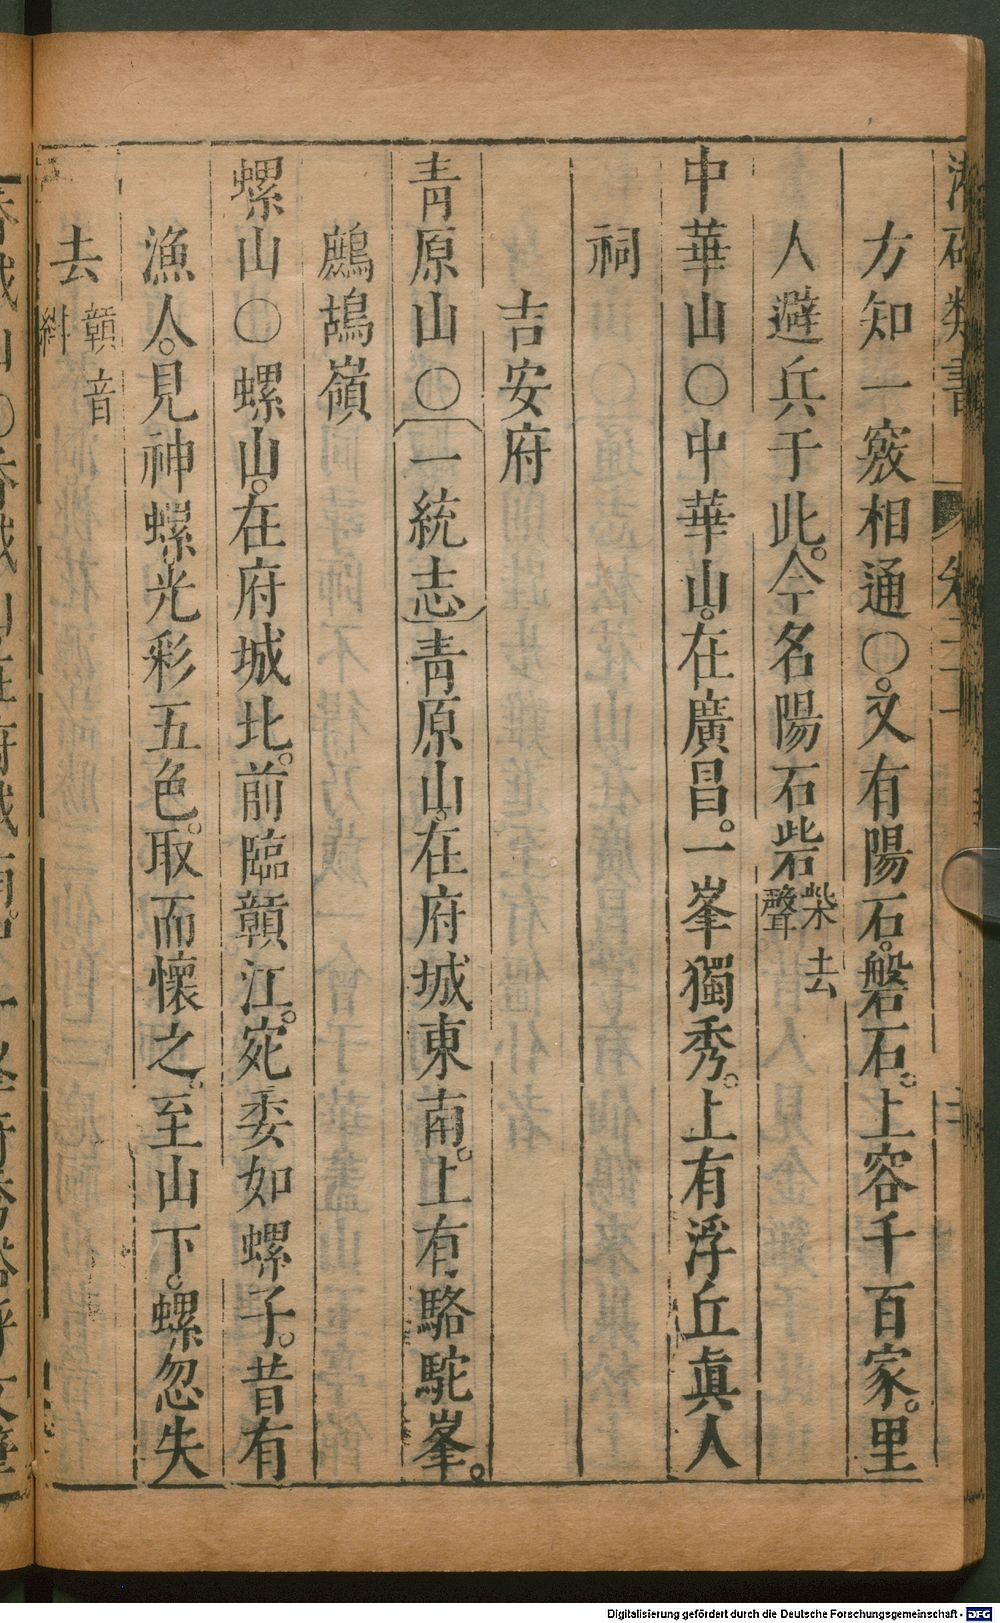 類書 卷二十
方知一竅相通〇又有陽石磐石上容千百家里
人避兵于此今名陽石砦柴去聲
中華山〇中華山在廣昌一峯獨秀上有浮丘眞人
祠
吉安府
青原山〇一統志青原山在府城東南上有駱駝峯
鷓鴣嶺
螺山〇螺山在府城北前臨贛江宛委如螺子昔有
漁人見神螺光彩五色取而懷之至山下螺忽失
去贛音紺
Digitalisierung gefördert durch die Deutsche Forschungsgemeinschaft - DFG